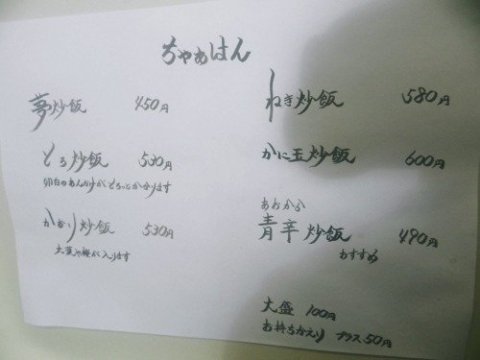 ちゃあはん
夢炒飯 450円
とろ炒飯 530円
卵白のあんかけがとろっとかかります
かおり炒飯 530円
大葉や梅が入ります
ねぎ炒飯 580円
かに玉炒飯 600円
あおから
青辛炒飯 490円
おすすめ
大盛 100円
お持ちかえり プラス50円